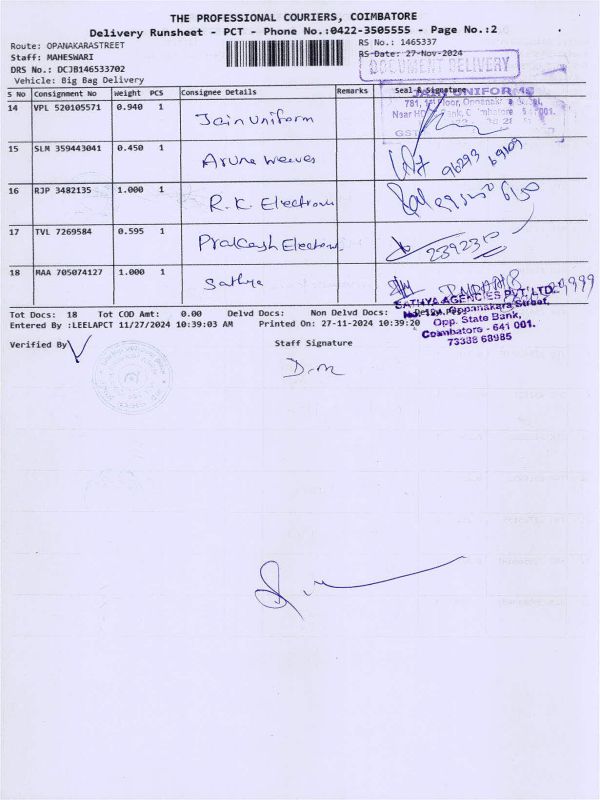 THE PROFESSIONAL COURIERS, COIMBATORE
Delivery Runsheet - PCT - Phone No.:0422-3505555 - Page No.:2
Route: OPANAKARASTREET RS No.: 1465337
Staff: MAHESWARI RS Date: 27-Nov-2024
DRS No.: DCJB146533702
Vehicle: Big Bag Delivery
DOCUMENT DELIVERY
S No Consignment No Weight PCS Consignee Details Remarks Seal & Signature
14 VPL 520105571 0.940 1 Jain Uniform
JAIN UNIFORMS
781, 1st Floor, Oppanakara Street,
Near HDFC Bank, Coimbatore
15 SLM 359443041 0.450 1 Aruna weaves
16 RJP 3482135 1.000 1 R.K. Electronic
17 TVL 7269584 0.595 1 Prakash Electron
18 MAA 705074127 1.000 1 Sathya
SATHYA AGENCIES PVT. LTD.
Oppanakara Street,
Opp. State Bank,
Coimbatore - 641 001.
73388 68985
Tot Docs: 18 Tot COD Amt: 0.00 Delvd Docs: Non Delvd Docs:
Entered By :LEELAPCT 11/27/2024 10:39:03 AM Printed On: 27-11-2024 10:39:20
Verified By Staff Signature